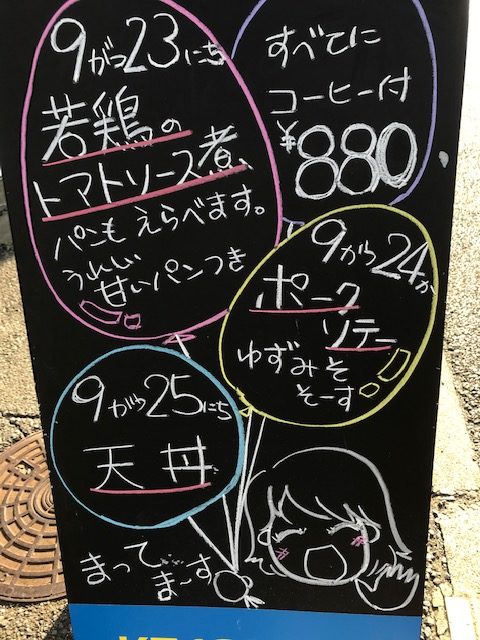 9がつ23にち
若鶏の
トマトソース煮、
パンもえらべます。
うれしい
甘いパンつき
すべてに
コーヒー付
¥880
9がつ24か
ポーク
ソテー
ゆずみそ
そーす
9がつ25にち
天丼
まって
ま~す